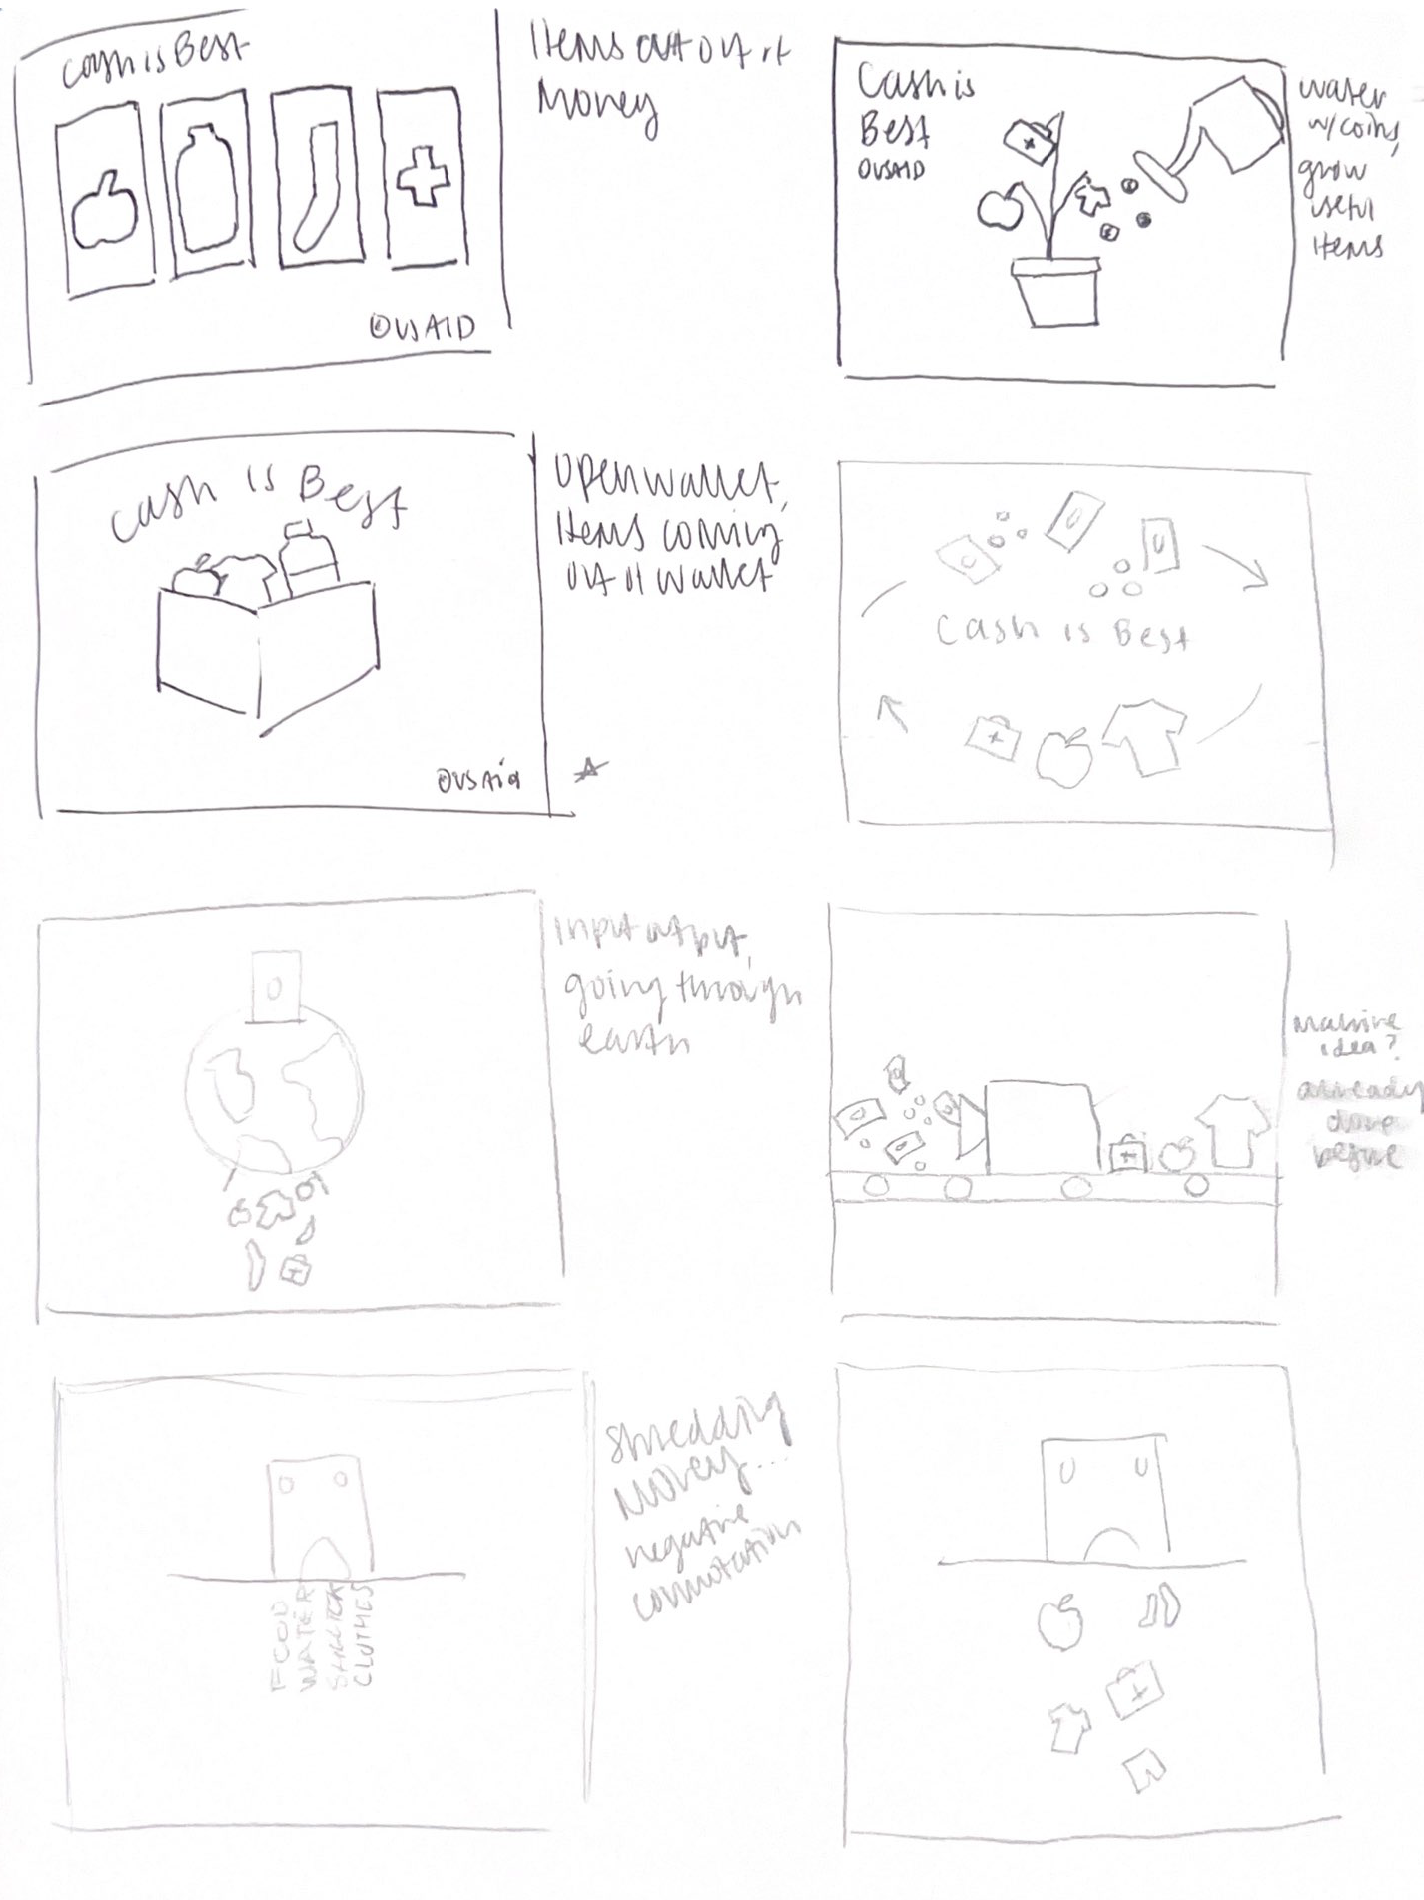 Cash is Best
©USAID
Items cut out of
Money
Cash is
Best
©USAID
water
w/coins,
grow
useful
items
Cash is Best
©USAid
Open wallet,
Items coming
out of wallet
Cash is Best
Input output,
going through
earth
Machine
idea?
already
done
before
FOOD
WATER
SHELTER
CLOTHES
Shredding
Money...
negative
connotation